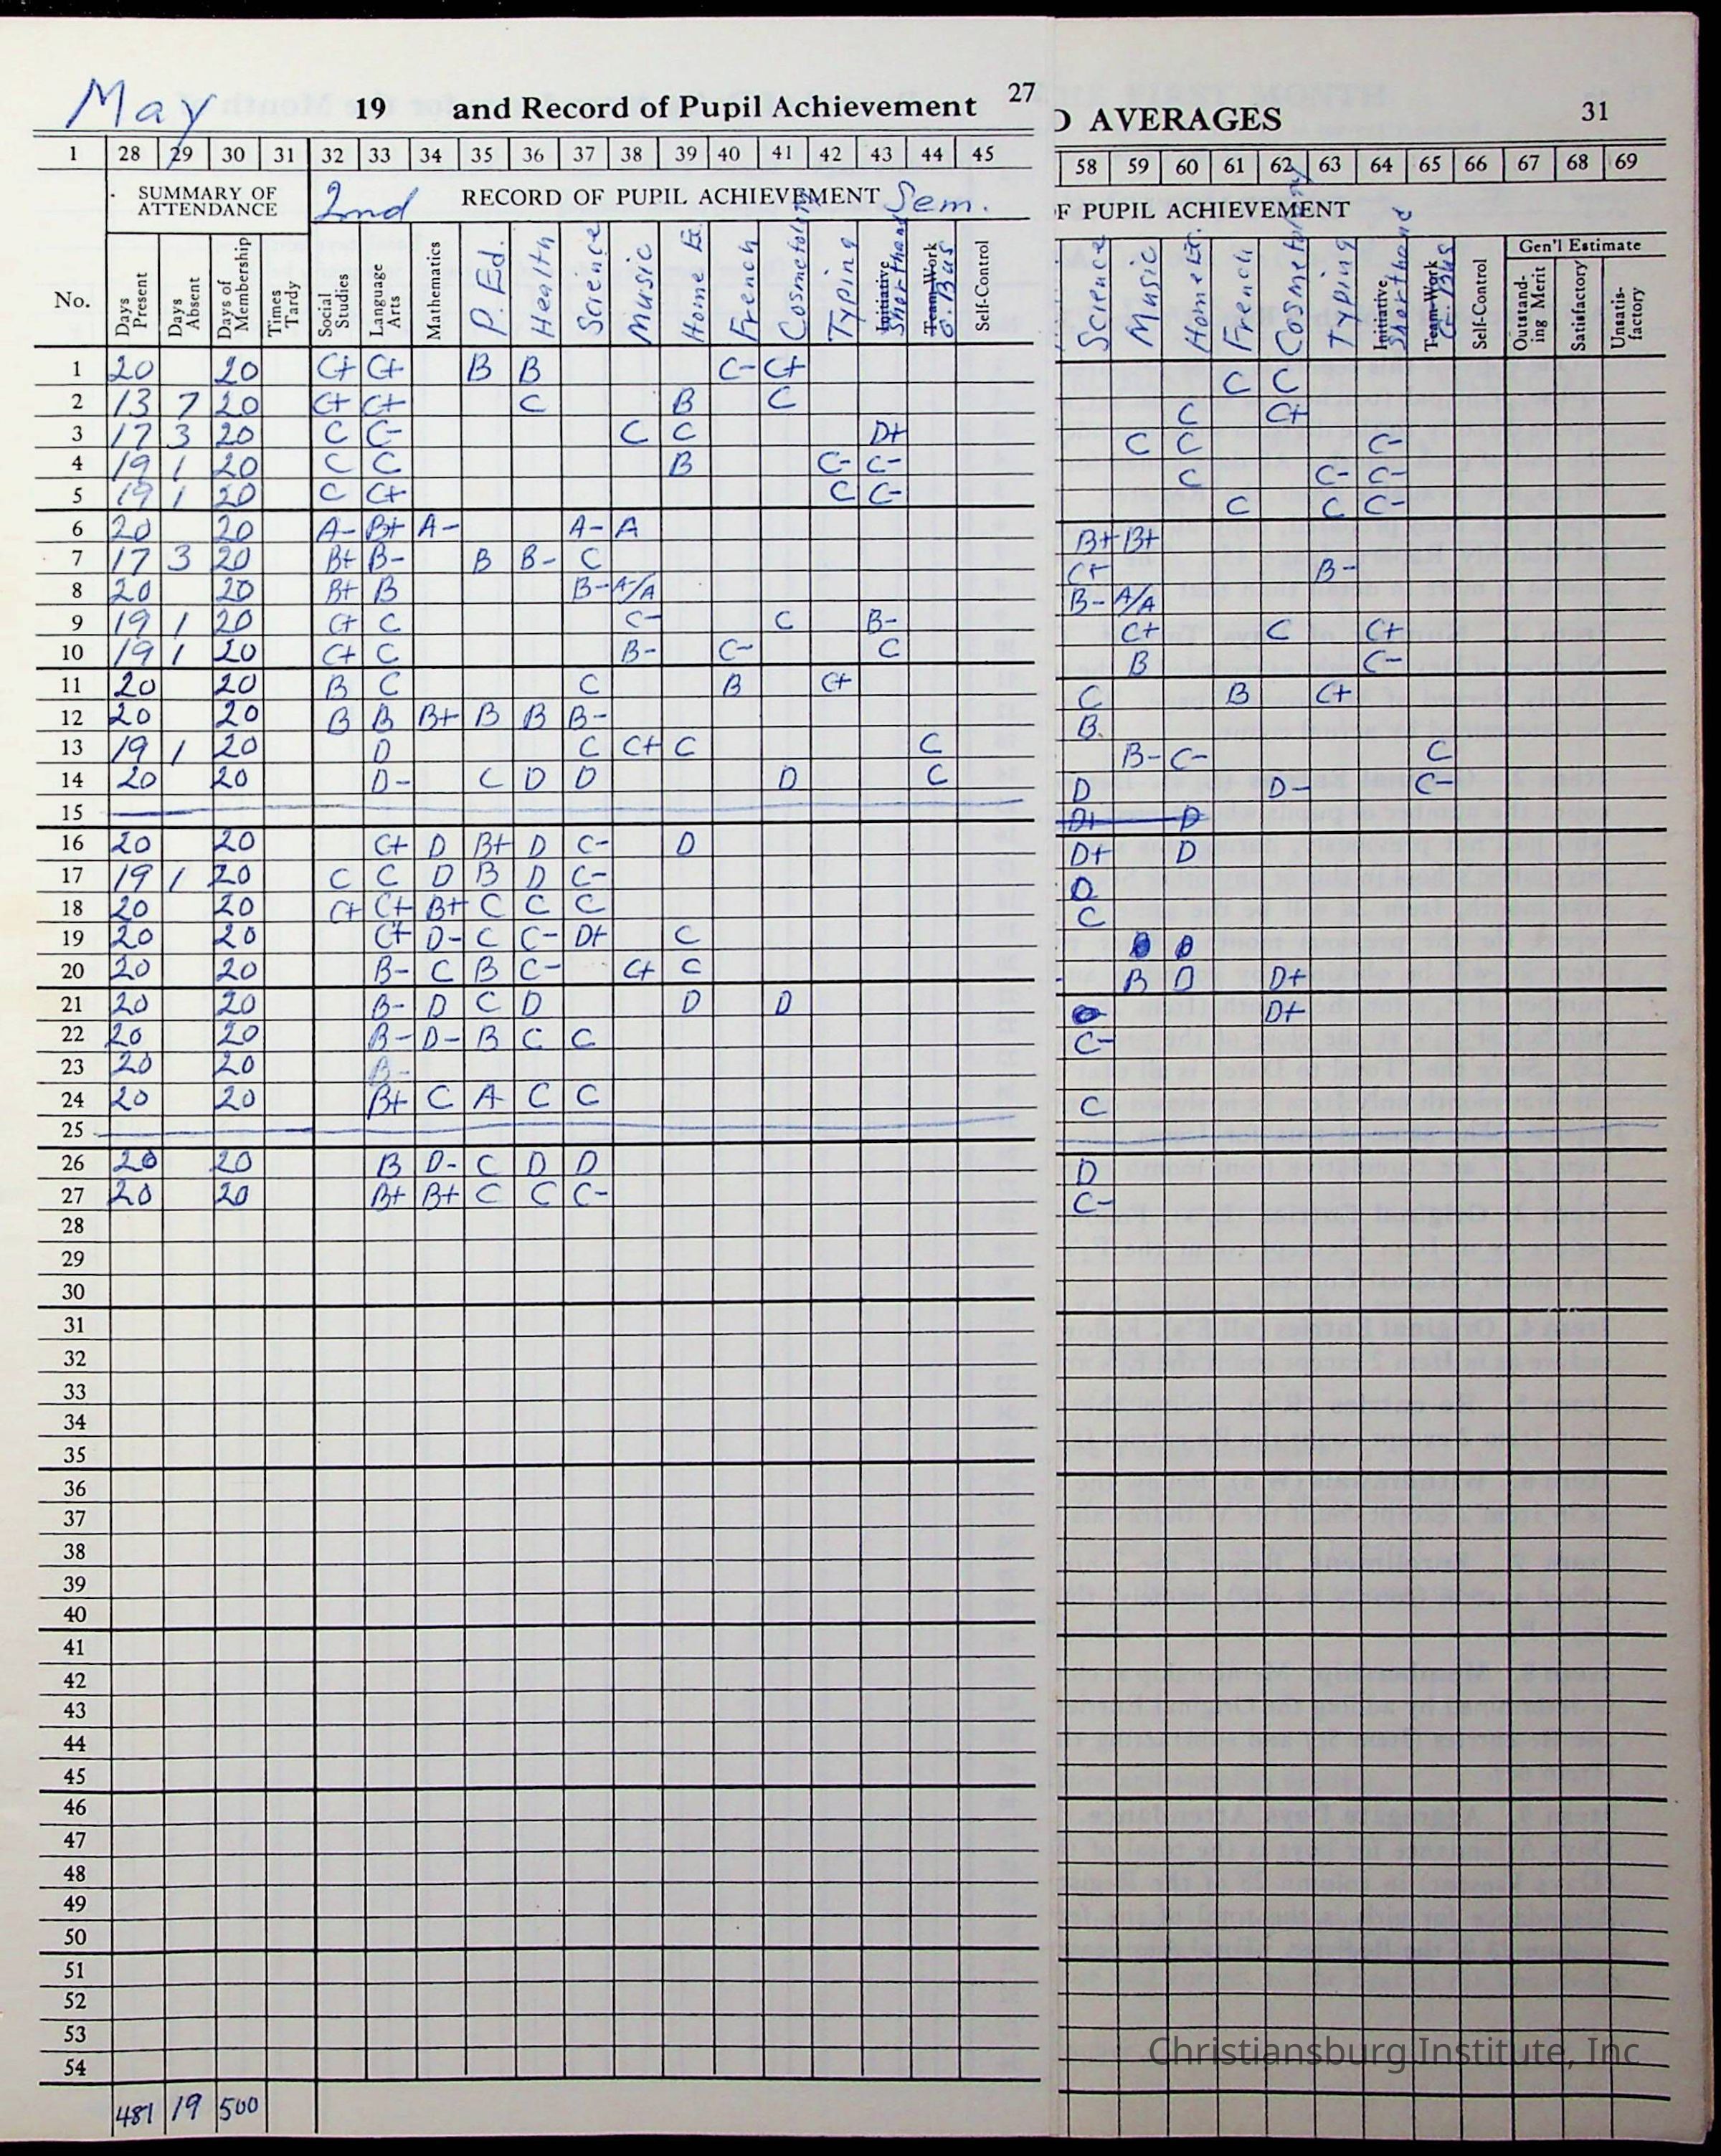 May 19 and Record of Pupil Achievement 27
1 28 29 30 31 32 33 34 35 36 37 38 39 40 41 42 43 44 45
SUMMARY OF ATTENDANCE 2nd RECORD OF PUPIL ACHIEVEMENT Sem.
No. Days Present Days Absent Days of Membership Times Tardy Social Studies Language Arts Mathematics P. Ed. Health Science Music Home E. French Cosmetology Typing Initiative Shorthand Team-Work G. Bus Self-Control
1 20 20 C+ C+ B B C- C+
2 13 7 20 C+ C+ C B C
3 17 3 20 C C- C C D+
4 19 1 20 C C B C- C-
5 19 1 20 C C+ C C-
6 20 20 A- B+ A- A- A
7 17 3 20 B+ B- B B- C
8 20 20 B+ B B- A/A
9 19 1 20 C+ C C- C B-
10 19 1 20 C+ C B- C- C
11 20 20 B C C B C+
12 20 20 B B B+ B B B-
13 19 1 20 D C C+ C C
14 20 20 D- C D D D C
15
16 20 20 C+ D B+ D C- D
17 19 1 20 C C D B D C-
18 20 20 C+ C+ B+ C C C
19 20 20 C+ D- C C- D+ C
20 20 20 B- C B C- C+ C
21 20 20 B- D C D D D
22 20 20 B- D- B C C
23 20 20 B-
24 20 20 B+ C A- C C
25
26 20 20 B D- C D D
27 20 20 B+ B+ C C C-
28
29
30
31
32
33
34
35
36
37
38
39
40
41
42
43
44
45
46
47
48
49
50
51
52
53
54
481 19 500
D AVERAGES 31
58 59 60 61 62 63 64 65 66 67 68 69
F PUPIL ACHIEVEMENT
Science Music Home E. French Cosmetology Typing Initiative Shorthand Team-Work G. Bus Self-Control Gen'l Estimate Outstanding Merit Satisfactory Unsatisfactory
C C
C C+
C C C-
C C- C-
C C C-
B+ B+
C+ B-
B- A/A
C+ C C+
B C-
C B C+
B
B- C- C
D D- C-
D+ D
D+ D
D
C
B D D+
D+
C-
C
D
C-
Christiansburg Institute, Inc